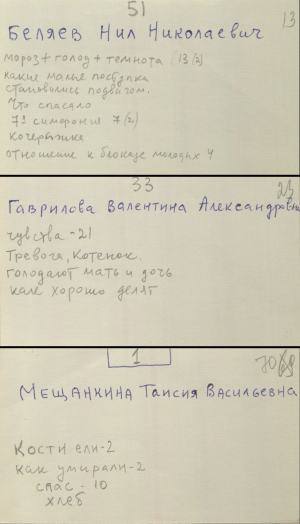 51
13
Беляев Нил Николаевич
мороз + голод + темнота (13/2)
какие малые поступка
становились подвигом.
Что спасало
7ая симфония 7(2)
Кочерыжке
отношение к блокаде молодых 4
33
23
Гаврилова Валентина Александровна
чувства - 21
Тревога, Котенок.
голодают мать и дочь
как хорошо делят
1
70
Мещанкина Таисия Васильевна
Кости ели - 2
как умирали - 2
спас - 10
хлеб